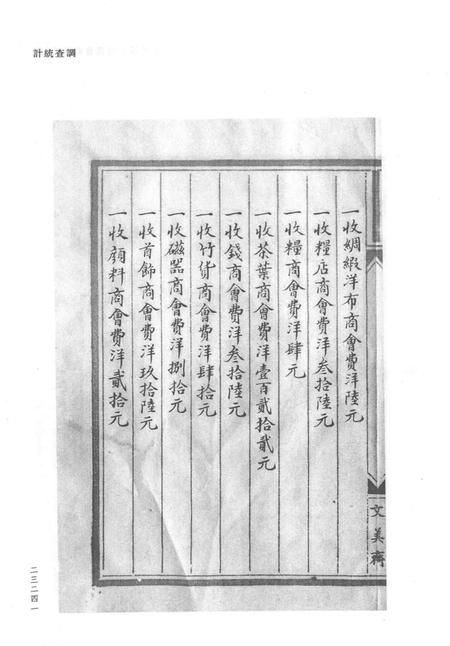 計統查調
一收綢緞洋布商會費洋陸元
一收糧店商會費洋叁拾陸元
一收糧商會費洋肆元
一收茶葉商會費洋壹百貳拾貳元
一收錢商會費洋叁拾陸元
一收竹貨商會費洋肆拾元
一收磁器商會費洋捌拾元
一收首飾商會費洋玖拾陸元
一收顏料商會費洋貳拾元
文美齋
二三二四一